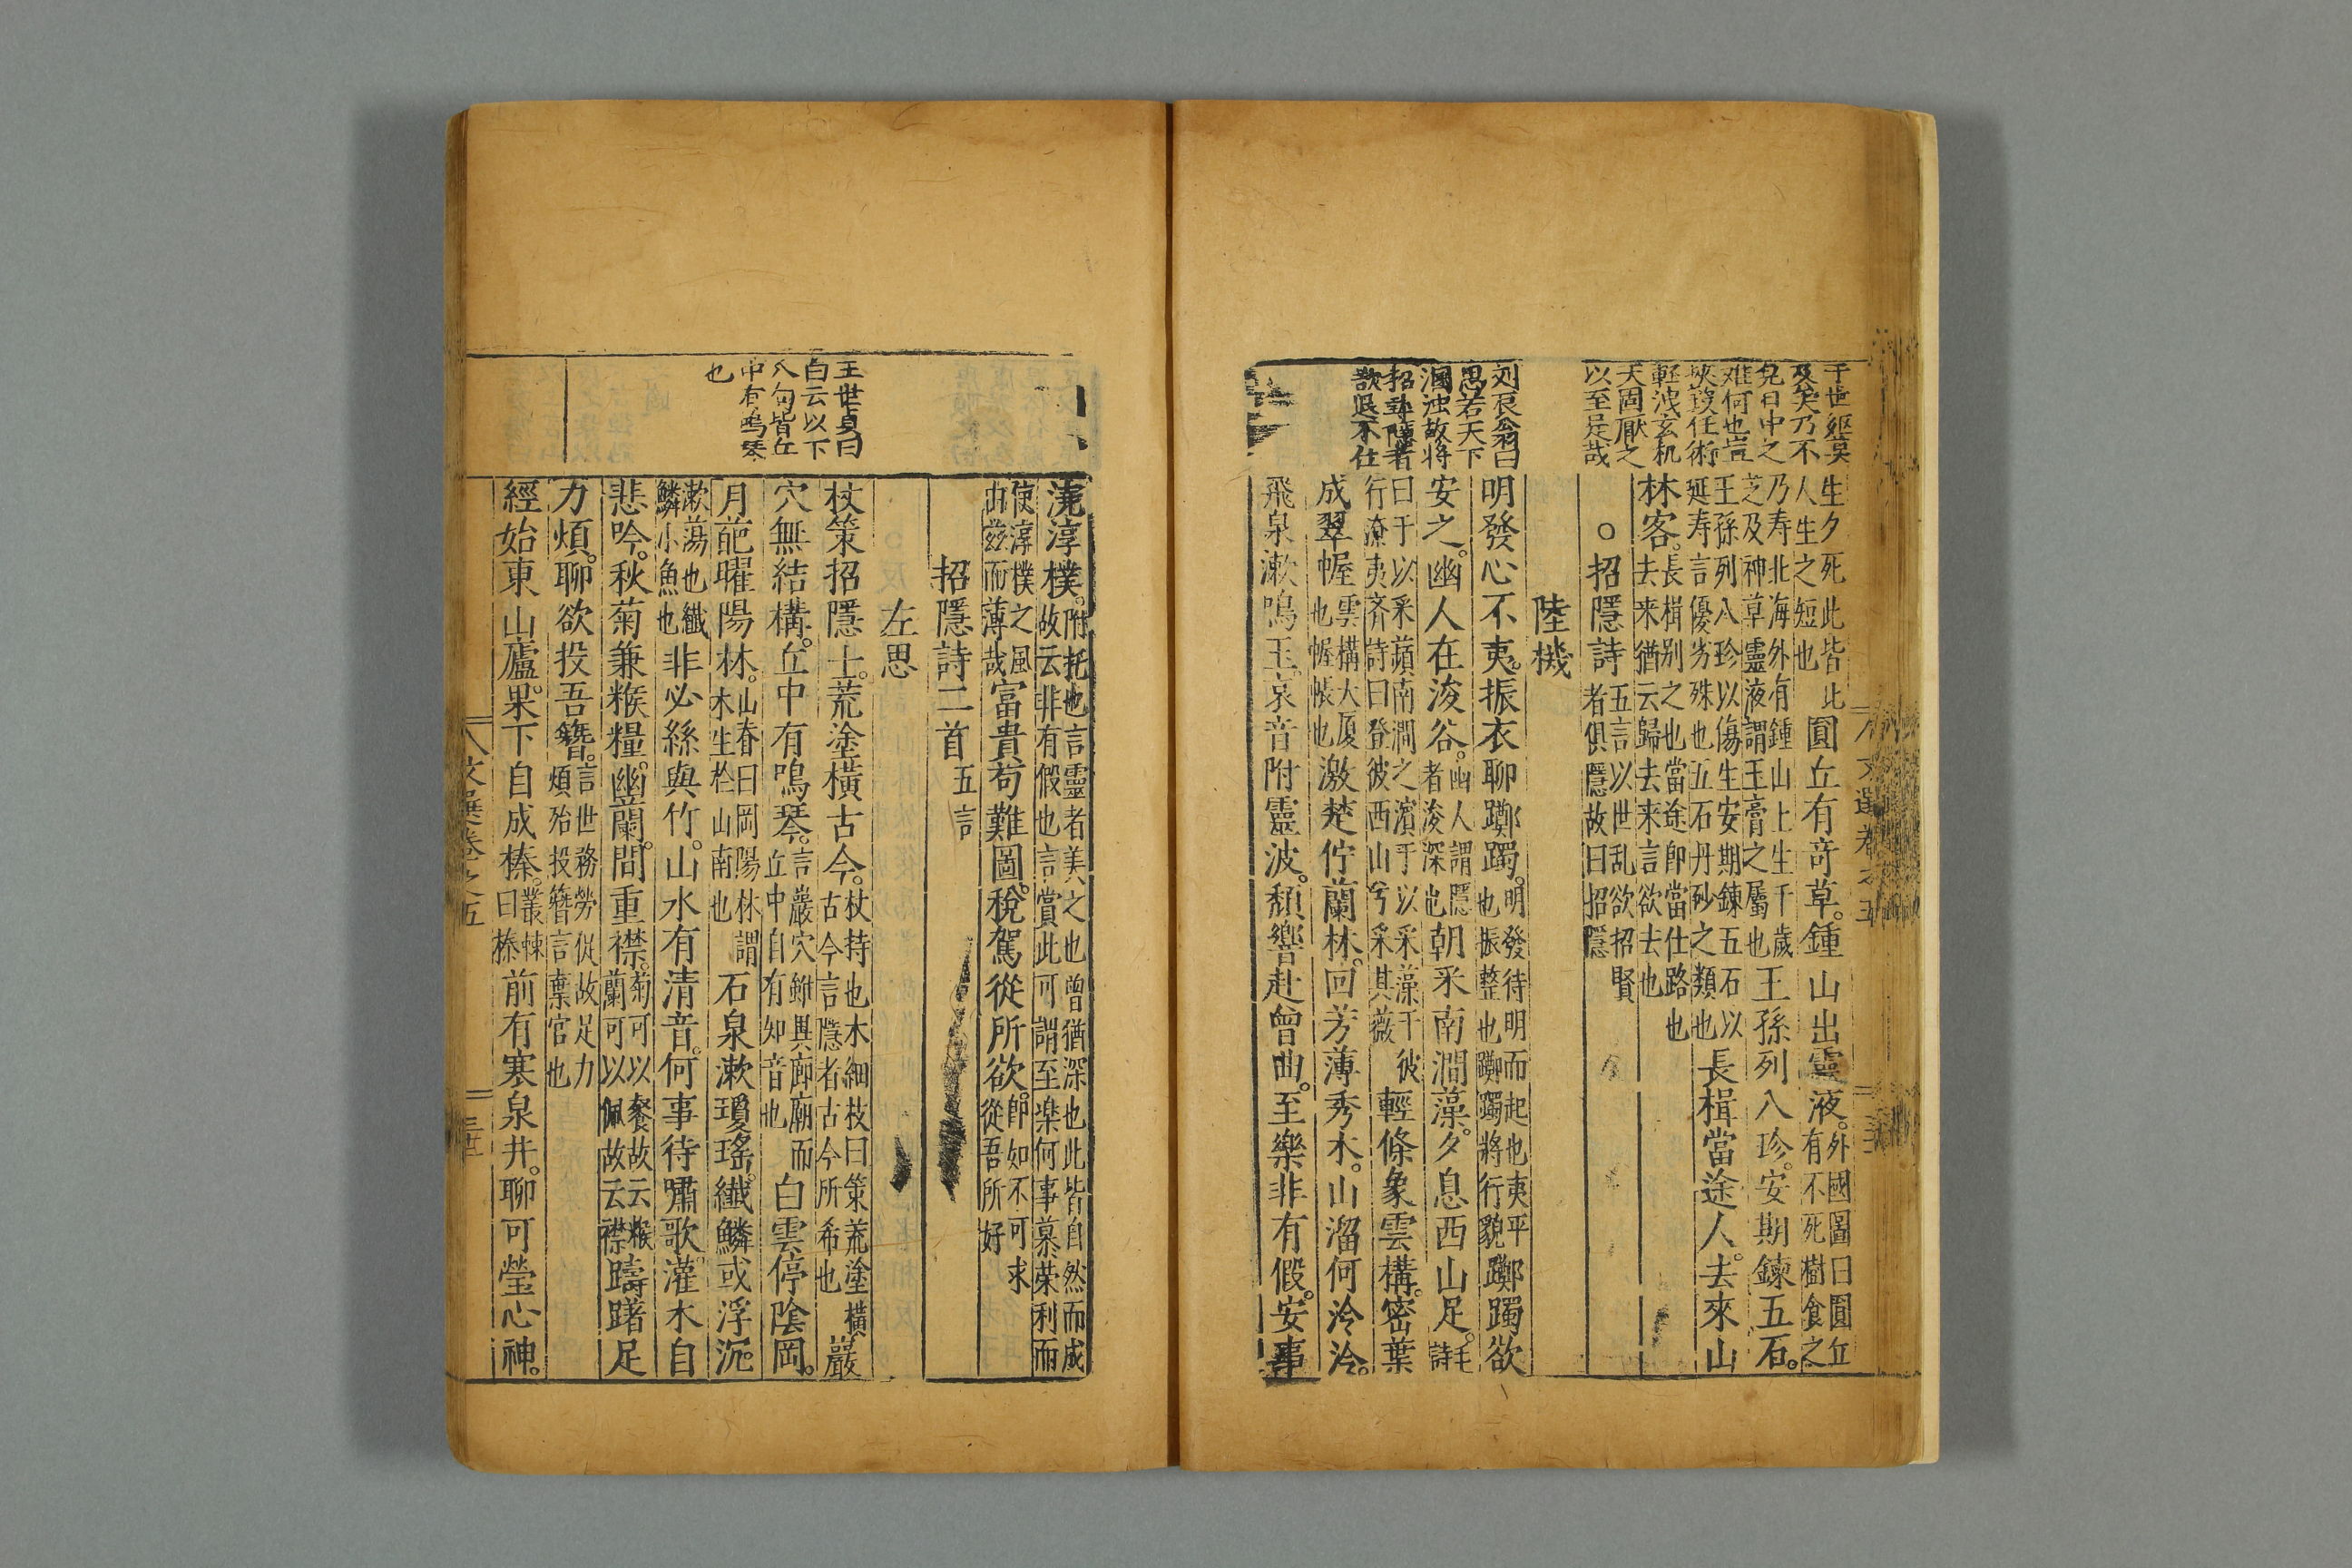 于世姬莫
及矣乃不
見日中之
难何也豈
挾茲任術
輕洩玄机
天固厭之
以至是哉
刘辰翁曰
思若天下
溷浊故將
招尋隱者
欲退不仕
生夕死此皆此
人生之短也
圓丘有竒草。鍾山出靈液。
外國圖曰圓丘
有不死樹食之
乃寿北海外有鍾山上生千歲
芝及神草靈液謂玉膏之屬也
王孫列八珍。安期鍊五石。
王孫列八珍以傷生安期鍊五石以
延寿言優劣殊也五石丹砂之類也
長揖當途人。去來山
林客。
長揖别之也當途即當仕路也
去来猶云歸去来言欲去也
○招隱詩
五言以世乱欲招賢
者俱隱故曰招隱
陸機
明發心不夷。振衣聊躑躅。
明發待明而起也夷平
也振整也躑躅將行貌
躑躅欲
安之。幽人在浚谷。
幽人謂隱
者浚深也
朝采南澗藻。夕息西山足。
毛
詩
曰于以采蘋南澗之濱于以采藻于彼
行潦夷齐詩曰登彼西山兮采其薇
輕條象雲構。密葉
成翠幄
雲構大厦
也幄帳也
激楚佇蘭林。回芳薄秀木。山溜何泠泠。
飛泉漱鳴玉。哀音附靈波。頽響赴曾曲。至樂非有假。安事
王世貞曰
白云以下
八句皆丘
中有鳴琴
也
澆淳樸。
附托也言靈者美之也曾猶深也此皆自然而成
故云非有假也言賞此可謂至楽何事慕荣利而
使淳樸之風
由茲而薄哉
富貴苟難圖。稅駕從所欲。
即如不可求
從吾所好
招隱詩二首
五言
左思
杖策招隱士。荒塗橫古今。
杖持也木細枝曰策荒塗橫
古今言隱者古今所希也
巖
穴無結構。丘中有鳴琴。
言巖穴雖異廊廟而
丘中自有知音也
白雲停陰岡。
月葩曜陽林。
山春曰岡陽林謂
木生於山南也
石泉漱瓊瑤。纖鱗或浮沉。
漱蕩也纖
鱗小魚也
非必絲與竹。山水有清音。何事待嘯歌。灌木自
悲吟。秋菊兼糇糧。幽蘭間重襟。
菊可以餐故云糇
蘭可以佩故云襟
躊躇足
力煩。聊欲投吾簪。
言世務勞促故足力
煩殆投簪言棄官也
經始東山廬。果下自成榛。
叢悚
曰榛
前有寒泉井。聊可瑩心神。
文選卷之五